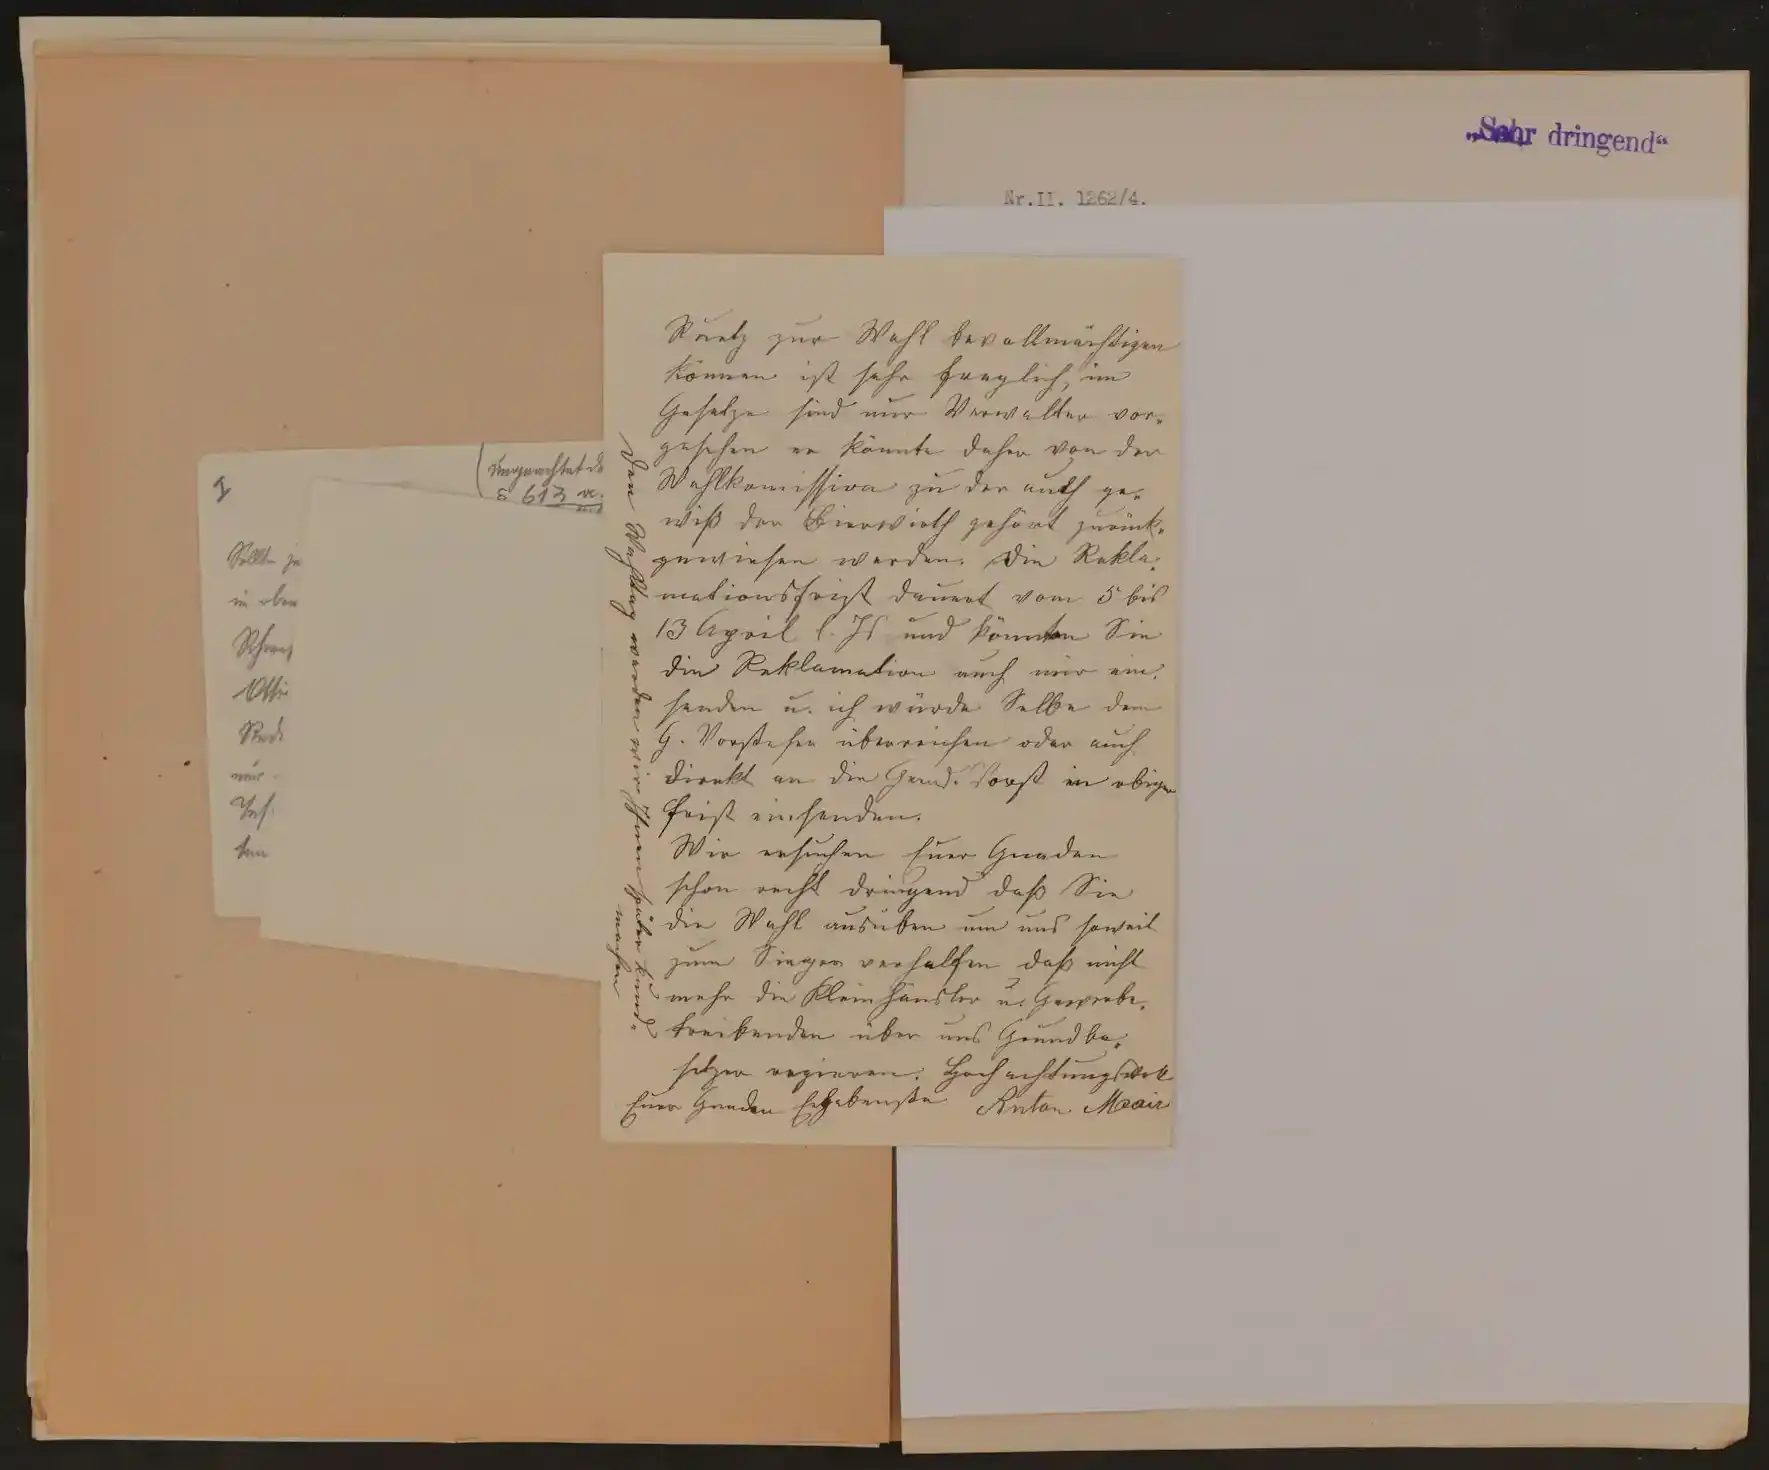 „Sehr dringend“
Nr.II. 1262/4.
I
§ 613
Sollte
in oben
Ruetz zur Wahl bevollmächtigen
können ist sehr fraglich, im
Gesetze sind nur Verwalter vor-
gesehen er könnte daher von der
Wahlkomission zu der auch ge-
wiß der Bierwirth gehört zurück-
gewiesen werden. Die Rekla-
mationsfrist dauert vom 5 bis
13 April l. Js und könnten Sie
die Reklamation auch mir ein-
senden u. ich würde Selbe dem
G. Vorsteher überreichen oder auch
direkt an die Gmd. Vorst in obiger
Frist einsenden.
Wir ersuchen Euer Gnaden
schon recht dringend daß Sie
die Wahl ausüben um uns soweit
zum Sieger verhelfen daß nicht
mehr die Kleinhäusler u. Gewerbe-
treibenden über uns Grundbe-
sitzer regieren. Hochachtungsvoll
Euer Gnaden Ergebenste Anton Mair
Den Wahltag werden wir Ihnen später kund-
machen